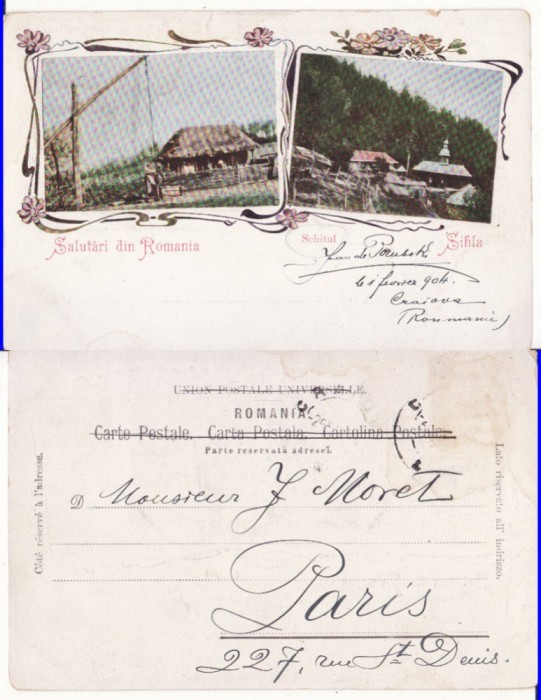 Salutări din Romania
Schitul Sihla
février 904.
Craiova
(Roumanie)
UNION POSTALE UNIVERSELLE.
ROMANIA.
Carte Postale. Carta Postala. Cartolina Postale.
Parte reservată adresei.
Côté réservé à l'adresse.
Lato riservato all' indrizzo.
D Monsieur J Moret
Paris
227, rue St Denis.